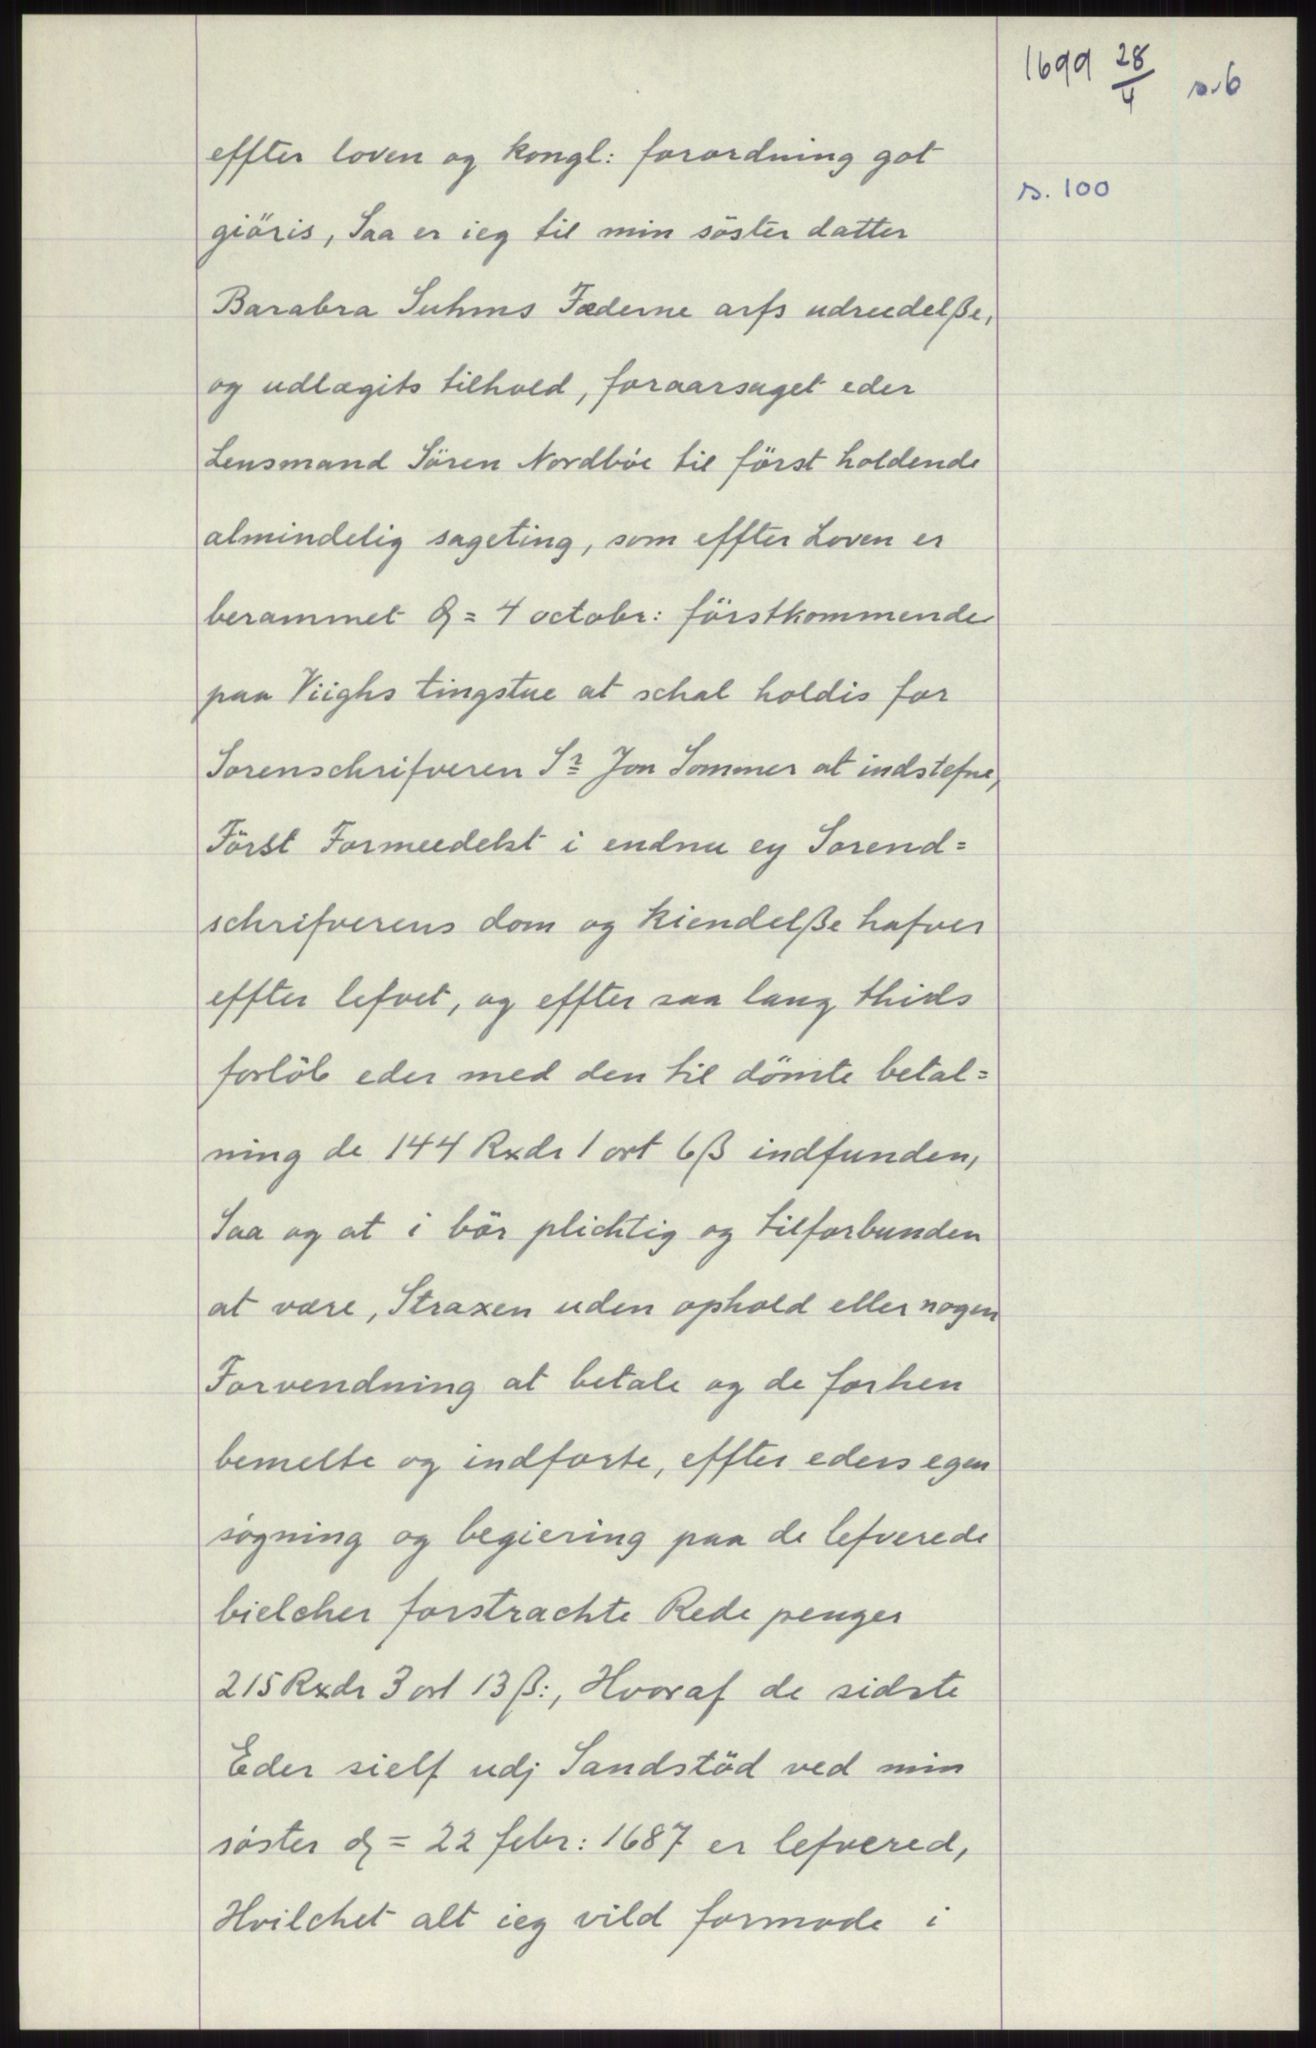 1699 28/4 s.6
s. 100
effter loven og kongl: forordning got
giöris, Saa er ieg til min söster datter
Barabra Suhms Fæderne arfs udreedelße,
og udlægits tilhold, foraarsaget eder
Lensmand Sören Nordböe til först holdende
almindelig sageting, som effter Loven er
berammet d = 4 octobr: förstkommende
paa Viighs tingstue at schal holdis for
Sorenschrifveren Sr Jon Sommer at indstefne,
Först Formeedelst i endnu ey Sorend=
schrifverens dom og kiendelße hafver
effter lefvet, og effter saa lang thids
forlöb eder med den til dömte betal=
ning de 144 Rxdr 1 ort 6 ß indfunden,
Saa og at i bör plichtig og tilforbunden
at være, Straxen uden ophold eller nogen
Forvendning at betale og de forhen
bemelte og indförte, effter eders egen
sögning og begiering paa de lefverede
bielcher forstrachte Rede penger
215 Rxdr 3 ort 13 ß:, Hvoraf de sidste
Eder sielf udj Sandstöd ved min
söster d = 22 febr: 1687 er lefvered,
Hvilchet alt ieg vild formode i